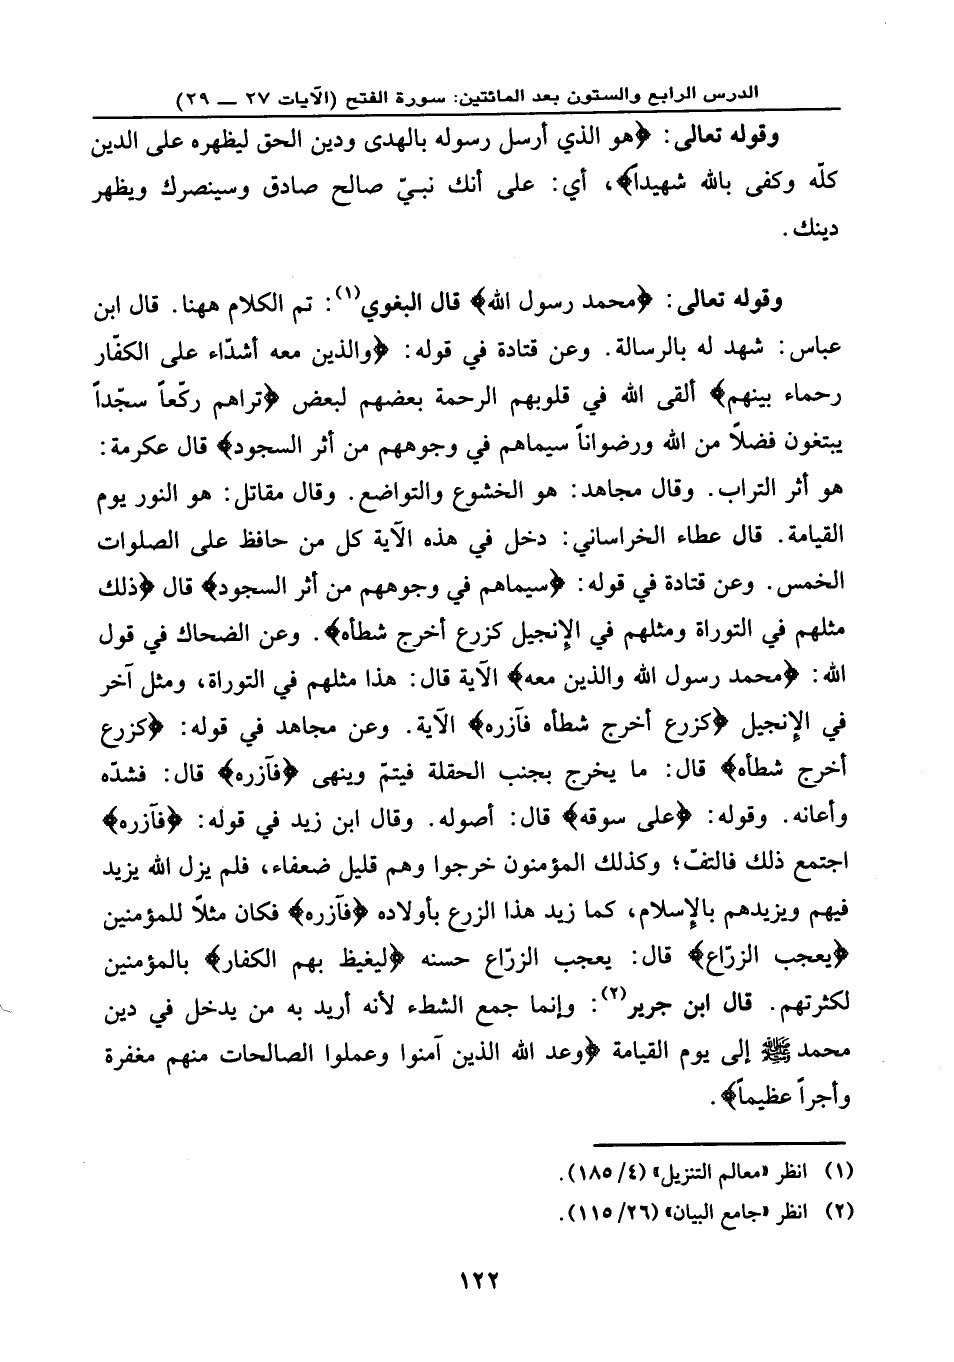 الدرس الرابع والستون بعد المائتين: سورة الفتح (الآيات ٢٧ ــ ٢٩)
وقوله تعالى: ﴿هو الذي أرسل رسوله بالهدى ودين الحق ليظهره على الدين
كلّه وكفى بالله شهيداً﴾، أي: على أنك نبيّ صالح صادق وسينصرك ويظهر
دينك.
وقوله تعالى: ﴿محمد رسول الله﴾ قال البغوي(١): تم الكلام ههنا. قال ابن
عباس: شهد له بالرسالة. وعن قتادة في قوله: ﴿والذين معه أشدّاء على الكفّار
رحماء بينهم﴾ ألقى الله في قلوبهم الرحمة بعضهم لبعض ﴿تراهم ركّعاً سجّداً
يبتغون فضلاً من الله ورضواناً سيماهم في وجوههم من أثر السجود﴾ قال عكرمة:
هو أثر التراب. وقال مجاهد: هو الخشوع والتواضع. وقال مقاتل: هو النور يوم
القيامة. قال عطاء الخراساني: دخل في هذه الآية كل من حافظ على الصلوات
الخمس. وعن قتادة في قوله: ﴿سيماهم في وجوههم من أثر السجود﴾ قال ﴿ذلك
مثلهم في التوراة ومثلهم في الإنجيل كزرع أخرج شطأه﴾. وعن الضحاك في قول
الله: ﴿محمد رسول الله والذين معه﴾ الآية قال: هذا مثلهم في التوراة، ومثل آخر
في الإنجيل ﴿كزرع أخرج شطأه فآزره﴾ الآية. وعن مجاهد في قوله: ﴿كزرع
أخرج شطأه﴾ قال: ما يخرج بجنب الحقلة فيتمّ وينهى ﴿فآزره﴾ قال: فشدّه
وأعانه. وقوله: ﴿على سوقه﴾ قال: أصوله. وقال ابن زيد في قوله: ﴿فآزره﴾
اجتمع ذلك فالتفّ؛ وكذلك المؤمنون خرجوا وهم قليل ضعفاء، فلم يزل الله يزيد
فيهم ويزيدهم بالإسلام، كما زيد هذا الزرع بأولاده ﴿فآزره﴾ فكان مثلاً للمؤمنين
﴿يعجب الزرّاع﴾ قال: يعجب الزرّاع حسنه ﴿ليغيظ بهم الكفار﴾ بالمؤمنين
لكثرتهم. قال ابن جرير(٢): وإنما جمع الشطء لأنه أريد به من يدخل في دين
محمد ﷺ إلى يوم القيامة ﴿وعد الله الذين آمنوا وعملوا الصالحات منهم مغفرة
وأجراً عظيماً﴾.
(١) انظر «معالم التنزيل» (٤/ ١٨٥).
(٢) انظر «جامع البيان» (٢٦/ ١١٥).
١٢٢